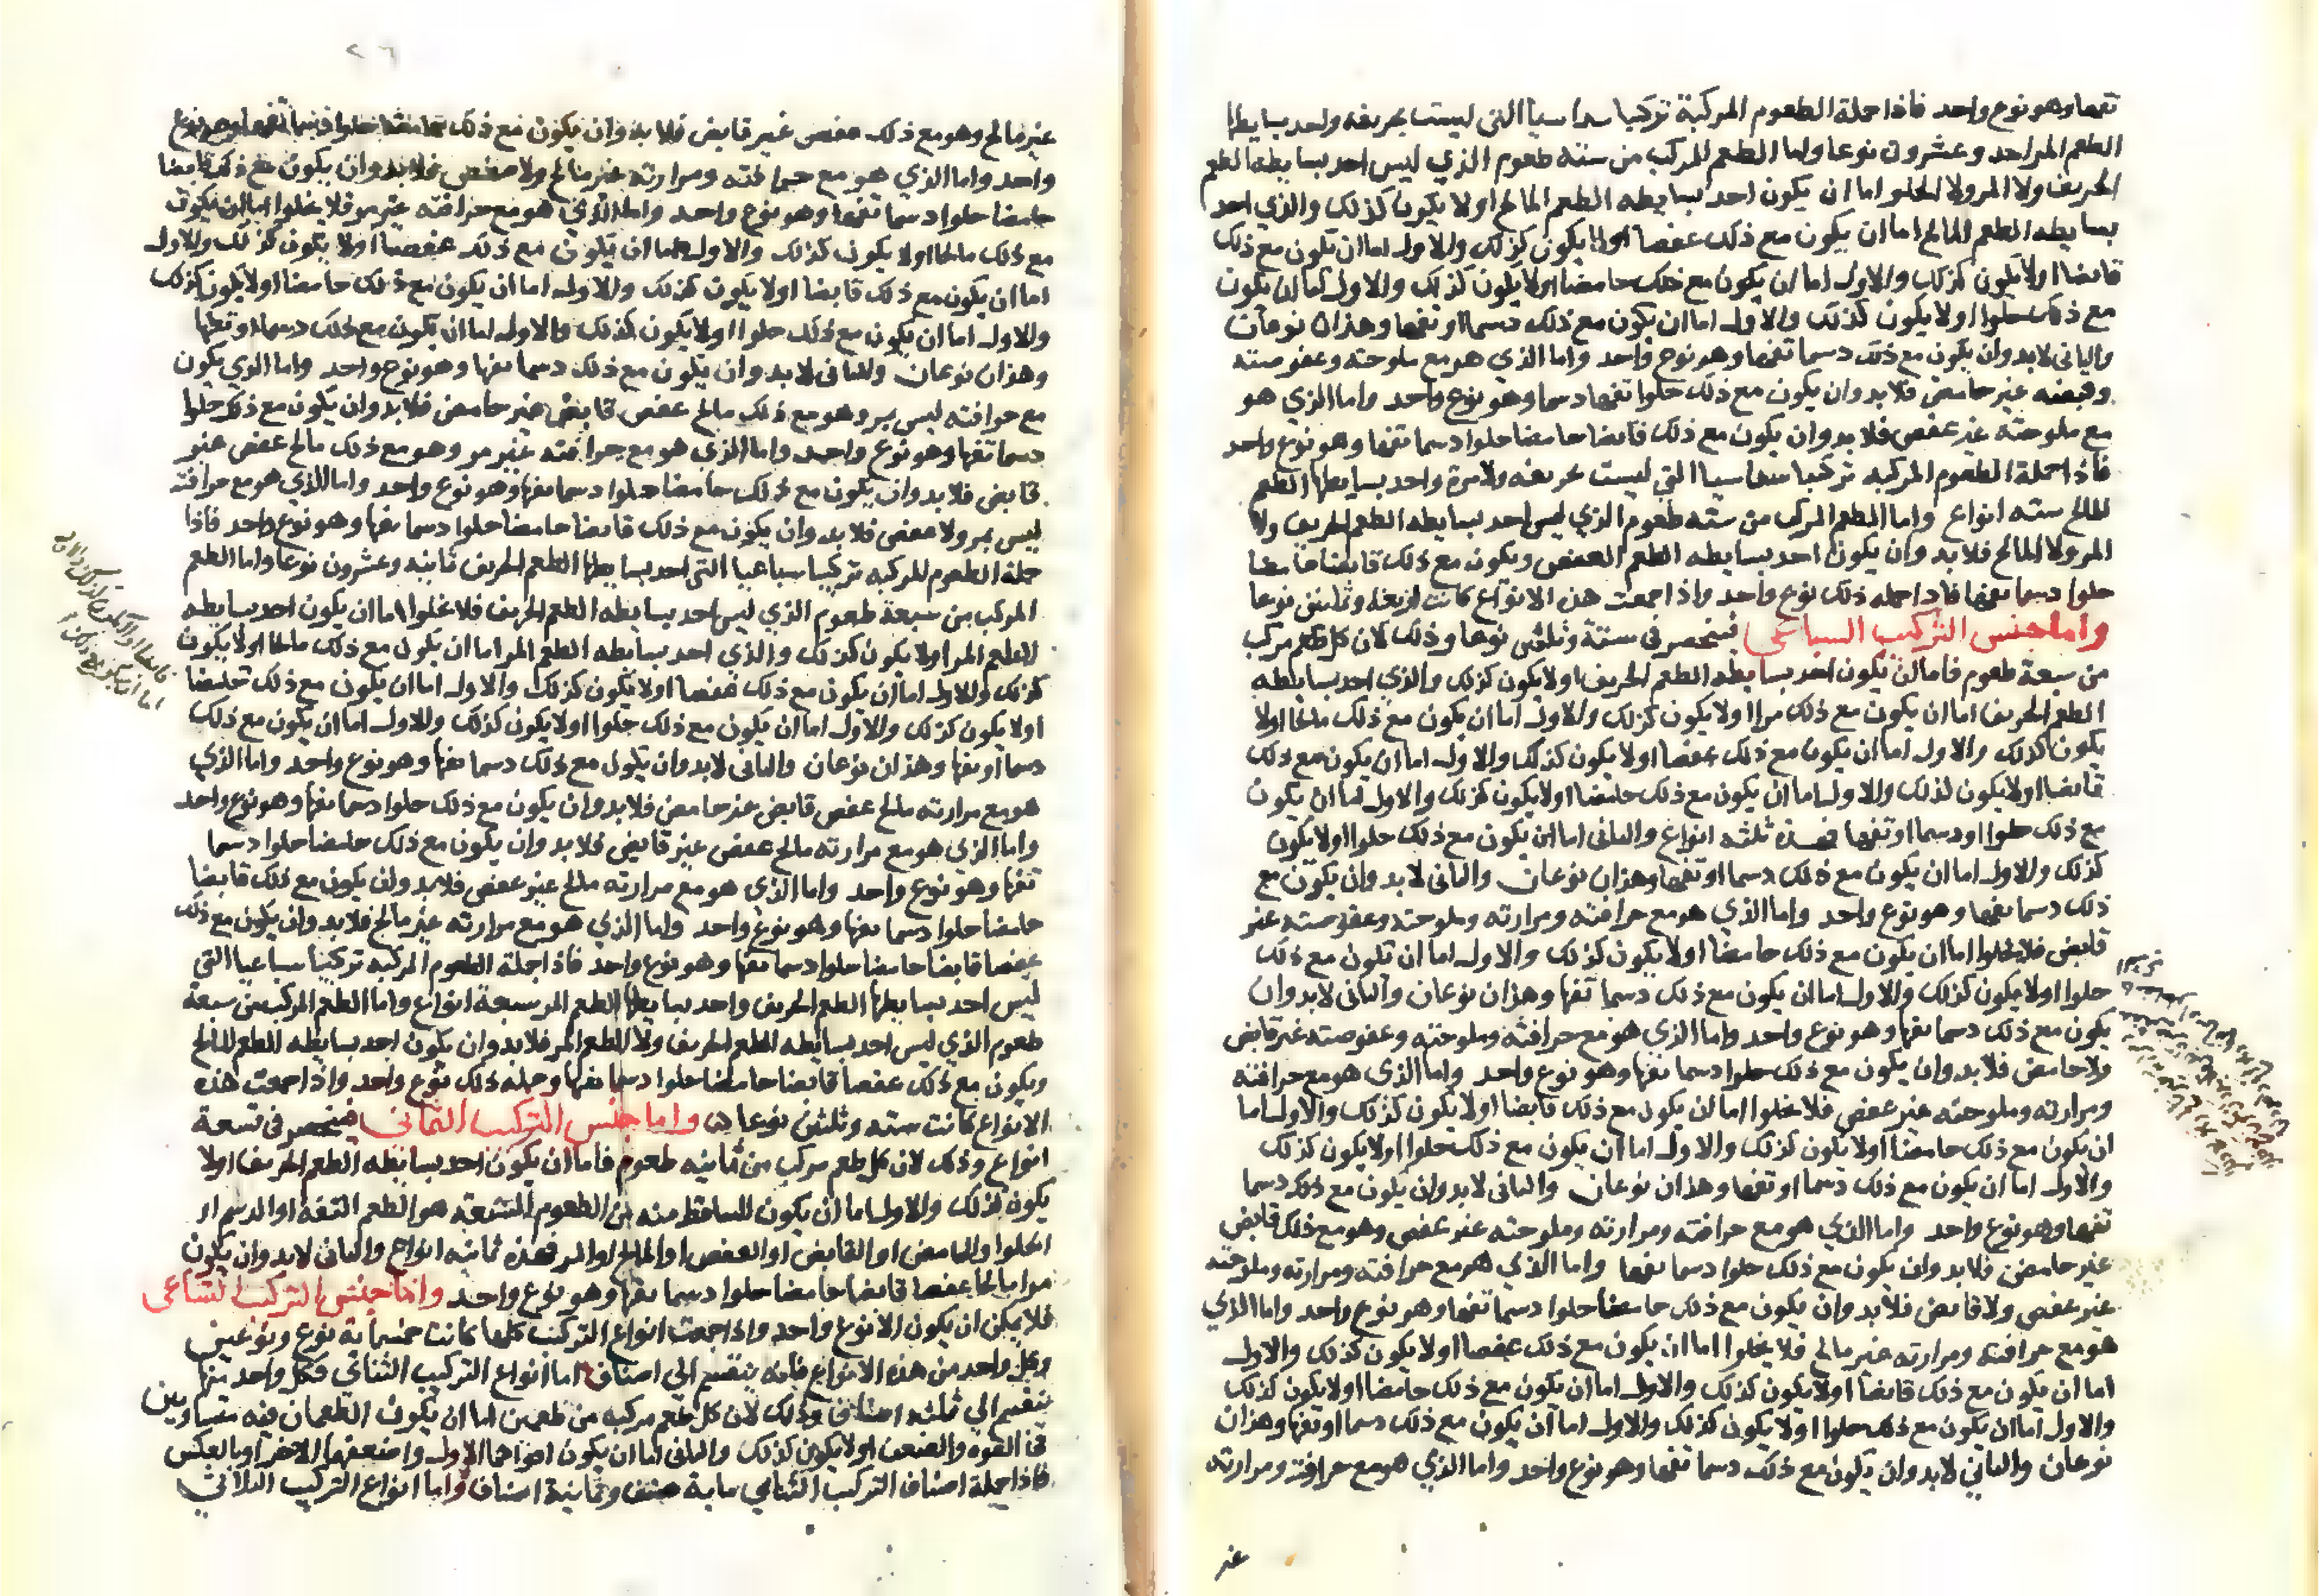 تفها وهو نوع واحد فاذا جملة الطعوم المركبة تركيبا سداسيا التى ليست بحريفه واحد بسايطها
الطعم المر احد وعشرون نوعا واما الطعم المركب من سته طعوم الذي ليس احد بسايطه الطعم
الحريف ولا المر ولا الحلو اما ان يكون احد بسايطه الطعم المالح او لا يكون كذلك والذي احد
بسايطه الطعم المالح اما ان يكون مع ذلك عفصا او لا يكون كذلك والاول اما ان يكون مع ذلك
قابضا او لا يكون كذلك والاول اما ان يكون مع ذلك حامضا او لا يكون كذلك والاول اما ان يكون
مع ذلك حلوا او لا يكون كذلك والاول اما ان يكون مع ذلك دسما او تفها وهذان نوعان
والثانى لابد وان يكون مع ذلك دسما تفها وهو نوع واحد واما الذي هو مع ملوحته وعفوصته
وقبضه غير حامض فلابد وان يكون مع ذلك حلوا تفها دسما وهو نوع واحد واما الذي هو
مع ملوحته غير عفص فلابد وان يكون مع ذلك قابضا حامضا حلوا دسما تفها وهو نوع واحد
فاذا جملة الطعوم المركبه تركيبا سداسيا التى ليست بحريفه ولا مرة واحد بسايطها الطعم
المالح سته انواع واما الطعم المركب من سته طعوم الذي ليس احد بسايطه الطعم الحريف ولا
المر ولا المالح فلابد وان يكون احد بسايطه الطعم العفص ويكون مع ذلك قابضا حامضا
حلوا دسما تفها فاذا جمله ذلك نوع واحد واذا جمعت هذه الانواع كانت اربعة وثمانين نوعا
واما جنس التركيب السباعى فينحصر فى ستة وثلثين نوعا وذلك لان كل طعم مركب
من سبعة طعوم فاما ان يكون احد بسايطه الطعم الحريف او لا يكون كذلك والذي احد بسايطه
الطعم الحريف اما ان يكون مع ذلك مرا او لا يكون كذلك والاول اما ان يكون مع ذلك مالحا او لا
يكون كذلك والاول اما ان يكون مع ذلك عفصا او لا يكون كذلك والاول اما ان يكون مع ذلك
قابضا او لا يكون كذلك والاول اما ان يكون مع ذلك حامضا او لا يكون كذلك والاول اما ان يكون
مع ذلك حلوا او دسما او تفها فهذه ثلثه انواع والثانى اما ان يكون مع ذلك حلوا او لا يكون
كذلك والاول اما ان يكون مع ذلك دسما او تفها وهذان نوعان والثانى لابد وان يكون مع
ذلك دسما تفها وهو نوع واحد واما الذي هو مع حرافته ومرارته وملوحته وعفوصته غير
قابض فلا يخلوا اما ان يكون مع ذلك حامضا او لا يكون كذلك والاول اما ان يكون مع ذلك
حلوا او لا يكون كذلك والاول اما ان يكون مع ذلك دسما تفها وهذان نوعان والثانى لابد وان
يكون مع ذلك دسما تفها وهو نوع واحد واما الذي هو مع حرافته وملوحته وعفوصته غير قابض
ولا حامض فلابد وان يكون مع ذلك حلوا دسما تفها وهو نوع واحد واما الذي هو مع حرافته
ومرارته وملوحته غير عفص فلا يخلوا اما ان يكون مع ذلك قابضا او لا يكون كذلك والاول اما
ان يكون مع ذلك حامضا او لا يكون كذلك والاول اما ان يكون مع ذلك حلوا او لا يكون كذلك
والاول اما ان يكون مع ذلك دسما او تفها وهذان نوعان والثانى لابد وان يكون مع ذلك دسما
تفها وهو نوع واحد واما الذي هو مع حرافته ومرارته وملوحته غير عفص وهو مع ذلك قابض
غير حامض فلابد وان يكون مع ذلك حلوا دسما تفها واما الذي هو مع حرافته ومرارته وملوحته
غير عفص ولا قابض فلابد وان يكون مع ذلك حامضا حلوا دسما تفها وهو نوع واحد واما الذي
هو مع حرافته ومرارته غير مالح فلا يخلوا اما ان يكون مع ذلك عفصا او لا يكون كذلك والاول
اما ان يكون مع ذلك قابضا او لا يكون كذلك والاول اما ان يكون مع ذلك حامضا او لا يكون كذلك
والاول اما ان يكون مع ذلك حلوا او لا يكون كذلك والاول اما ان يكون مع ذلك دسما او تفها وهذان
نوعان والثانى لابد وان يكون مع ذلك دسما تفها وهو نوع واحد واما الذي هو مع حرافته ومرارته
غير
٢٦
غير مالح وهو مع ذلك عفص غير قابض فلابد وان يكون مع ذلك حامضا حلوا دسما تفها وهو نوع
واحد واما الذي هو مع حرافته ومرارته غير مالح ولا عفص فلابد وان يكون مع ذلك قابضا
حامضا حلوا دسما تفها وهو نوع واحد واما الذي هو مع حرافته غير مر فلا يخلوا اما ان يكون
مع ذلك مالحا او لا يكون كذلك والاول اما ان يكون مع ذلك عفصا او لا يكون كذلك والاول
اما ان يكون مع ذلك قابضا او لا يكون كذلك والاول اما ان يكون مع ذلك حامضا او لا يكون كذلك
والاول اما ان يكون مع ذلك حلوا او لا يكون كذلك والاول اما ان يكون مع ذلك دسما او تفها
وهذان نوعان والثانى لابد وان يكون مع ذلك دسما تفها وهو نوع واحد واما الذي يكون
مع حرافته ليس بمر وهو مع ذلك مالح عفص قابض غير حامض فلابد وان يكون مع ذلك حلوا
دسما تفها وهو نوع واحد واما الذي هو مع حرافته غير مر وهو مع ذلك مالح عفص غير
قابض فلابد وان يكون مع ذلك حامضا حلوا دسما تفها وهو نوع واحد واما الذي هو مع حرافته
ليس بمر ولا عفص فلابد وان يكون مع ذلك قابضا حامضا حلوا دسما تفها وهو نوع واحد فاذا
جملة الطعوم المركبه تركيبا سباعيا التى احد بسايطها الطعم الحريف ثمانيه وعشرون نوعا واما الطعم
المركب من سبعة طعوم الذي ليس احد بسايطه الطعم الحريف فلا يخلوا اما ان يكون احد بسايطه
الطعم المر او لا يكون كذلك والذي احد بسايطه الطعم المر اما ان يكون مع ذلك مالحا او لا يكون
كذلك والاول اما ان يكون مع ذلك عفصا او لا يكون كذلك والاول اما ان يكون مع ذلك حامضا
او لا يكون كذلك والاول اما ان يكون مع ذلك حلوا او لا يكون كذلك والاول اما ان يكون مع ذلك
دسما او تفها وهذان نوعان والثانى لابد وان يكون مع ذلك دسما تفها وهو نوع واحد واما الذي
هو مع مرارته مالح عفص قابض غير حامض فلابد وان يكون مع ذلك حلوا دسما تفها وهو نوع واحد
واما الذي هو مع مرارته مالح عفص غير قابض فلابد وان يكون مع ذلك حامضا حلوا دسما
تفها وهو نوع واحد واما الذي هو مع مرارته مالح غير عفص فلابد وان يكون مع ذلك قابضا
حامضا حلوا دسما تفها وهو نوع واحد واما الذي هو مع مرارته غير مالح فلابد وان يكون مع ذلك
عفصا قابضا حامضا حلوا دسما تفها وهو نوع واحد فاذا جملة الطعوم المركبه تركيبا سباعيا التى
ليس احد بسايطها الطعم الحريف واحد بسايطها الطعم المر سبعة انواع واما الطعم المركب من سبعة
طعوم الذي ليس احد بسايطه الطعم الحريف ولا الطعم المر فلابد وان يكون احد بسايطه الطعم المالح
ويكون مع ذلك عفصا قابضا حامضا حلوا دسما تفها وجملة ذلك نوع واحد واذا جمعت هذه
الانواع كانت سته وثلثين نوعا واما جنس التركيب الثمانى فينحصر فى تسعة
انواع وذلك لان كل طعم مركب من ثمانيه طعوم فاما ان يكون احد بسايطه الطعم الحريف او لا
يكون كذلك والاول اما ان يكون الساقط منه من الطعوم التسعة هو الطعم التفه او الدسم او
الحلو او الحامض او القابض او العفص او المالح او المر فهذه ثمانيه انواع والثانى لابد وان يكون
مرا مالحا عفصا قابضا حامضا حلوا دسما تفها وهو نوع واحد واما جنس التركيب التساعى
فلا يمكن ان يكون الا نوع واحد واذا جمعت انواع التركيب كلها كانت خمسماية نوع ونوعين
وكل واحد من هذه الانواع فانه ينقسم الى اصناف اما انواع التركيب الثنائى فكل واحد منها
ينقسم الي ثلثه اصناف وذلك لان كل طعم مركبه من طعمين اما ان يكون الطعمان فيه متساويين
فى القوه والضعف او لا يكون كذلك والثانى اما ان يكون اقواهما الاول واضعفهما الاخر او بالعكس
فاذا جملة اصناف التركيب الثنائى ماية صنف وثمانية اصناف واما انواع التركيب الثلاثي
قابضا او لا يكون كذلك والاول
اما ان يكون مع ذلك